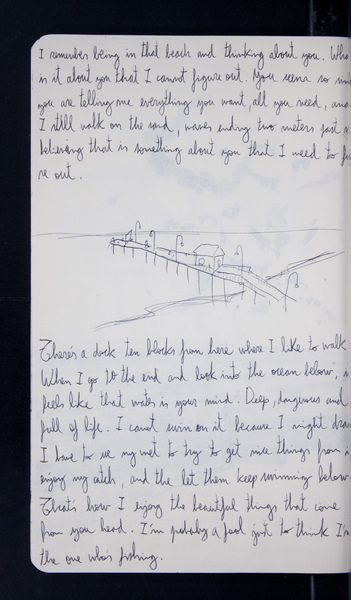 I remember being in that beach and thinking about you. Wha
is it about you that I cannot figure out. You seem so
you are telling me everything you want, all you need, and
I still walk on the sand, waves ending two meters
believing that is something about you that I need to fi
re out.
There's a dock ten blocks from here where I like to walk
When I go to the end and look into the ocean below, i
feels like that water is your mind. Deep, dangerous and
full of life. I can't swim on it because I might drow
I have to use my net to try to get nice things from i
enjoy my catch, and the let them keep swimming below
That's how I enjoy the beautiful things that come
from your head. I'm probably a fool just to think I'm
the one who's fishing.